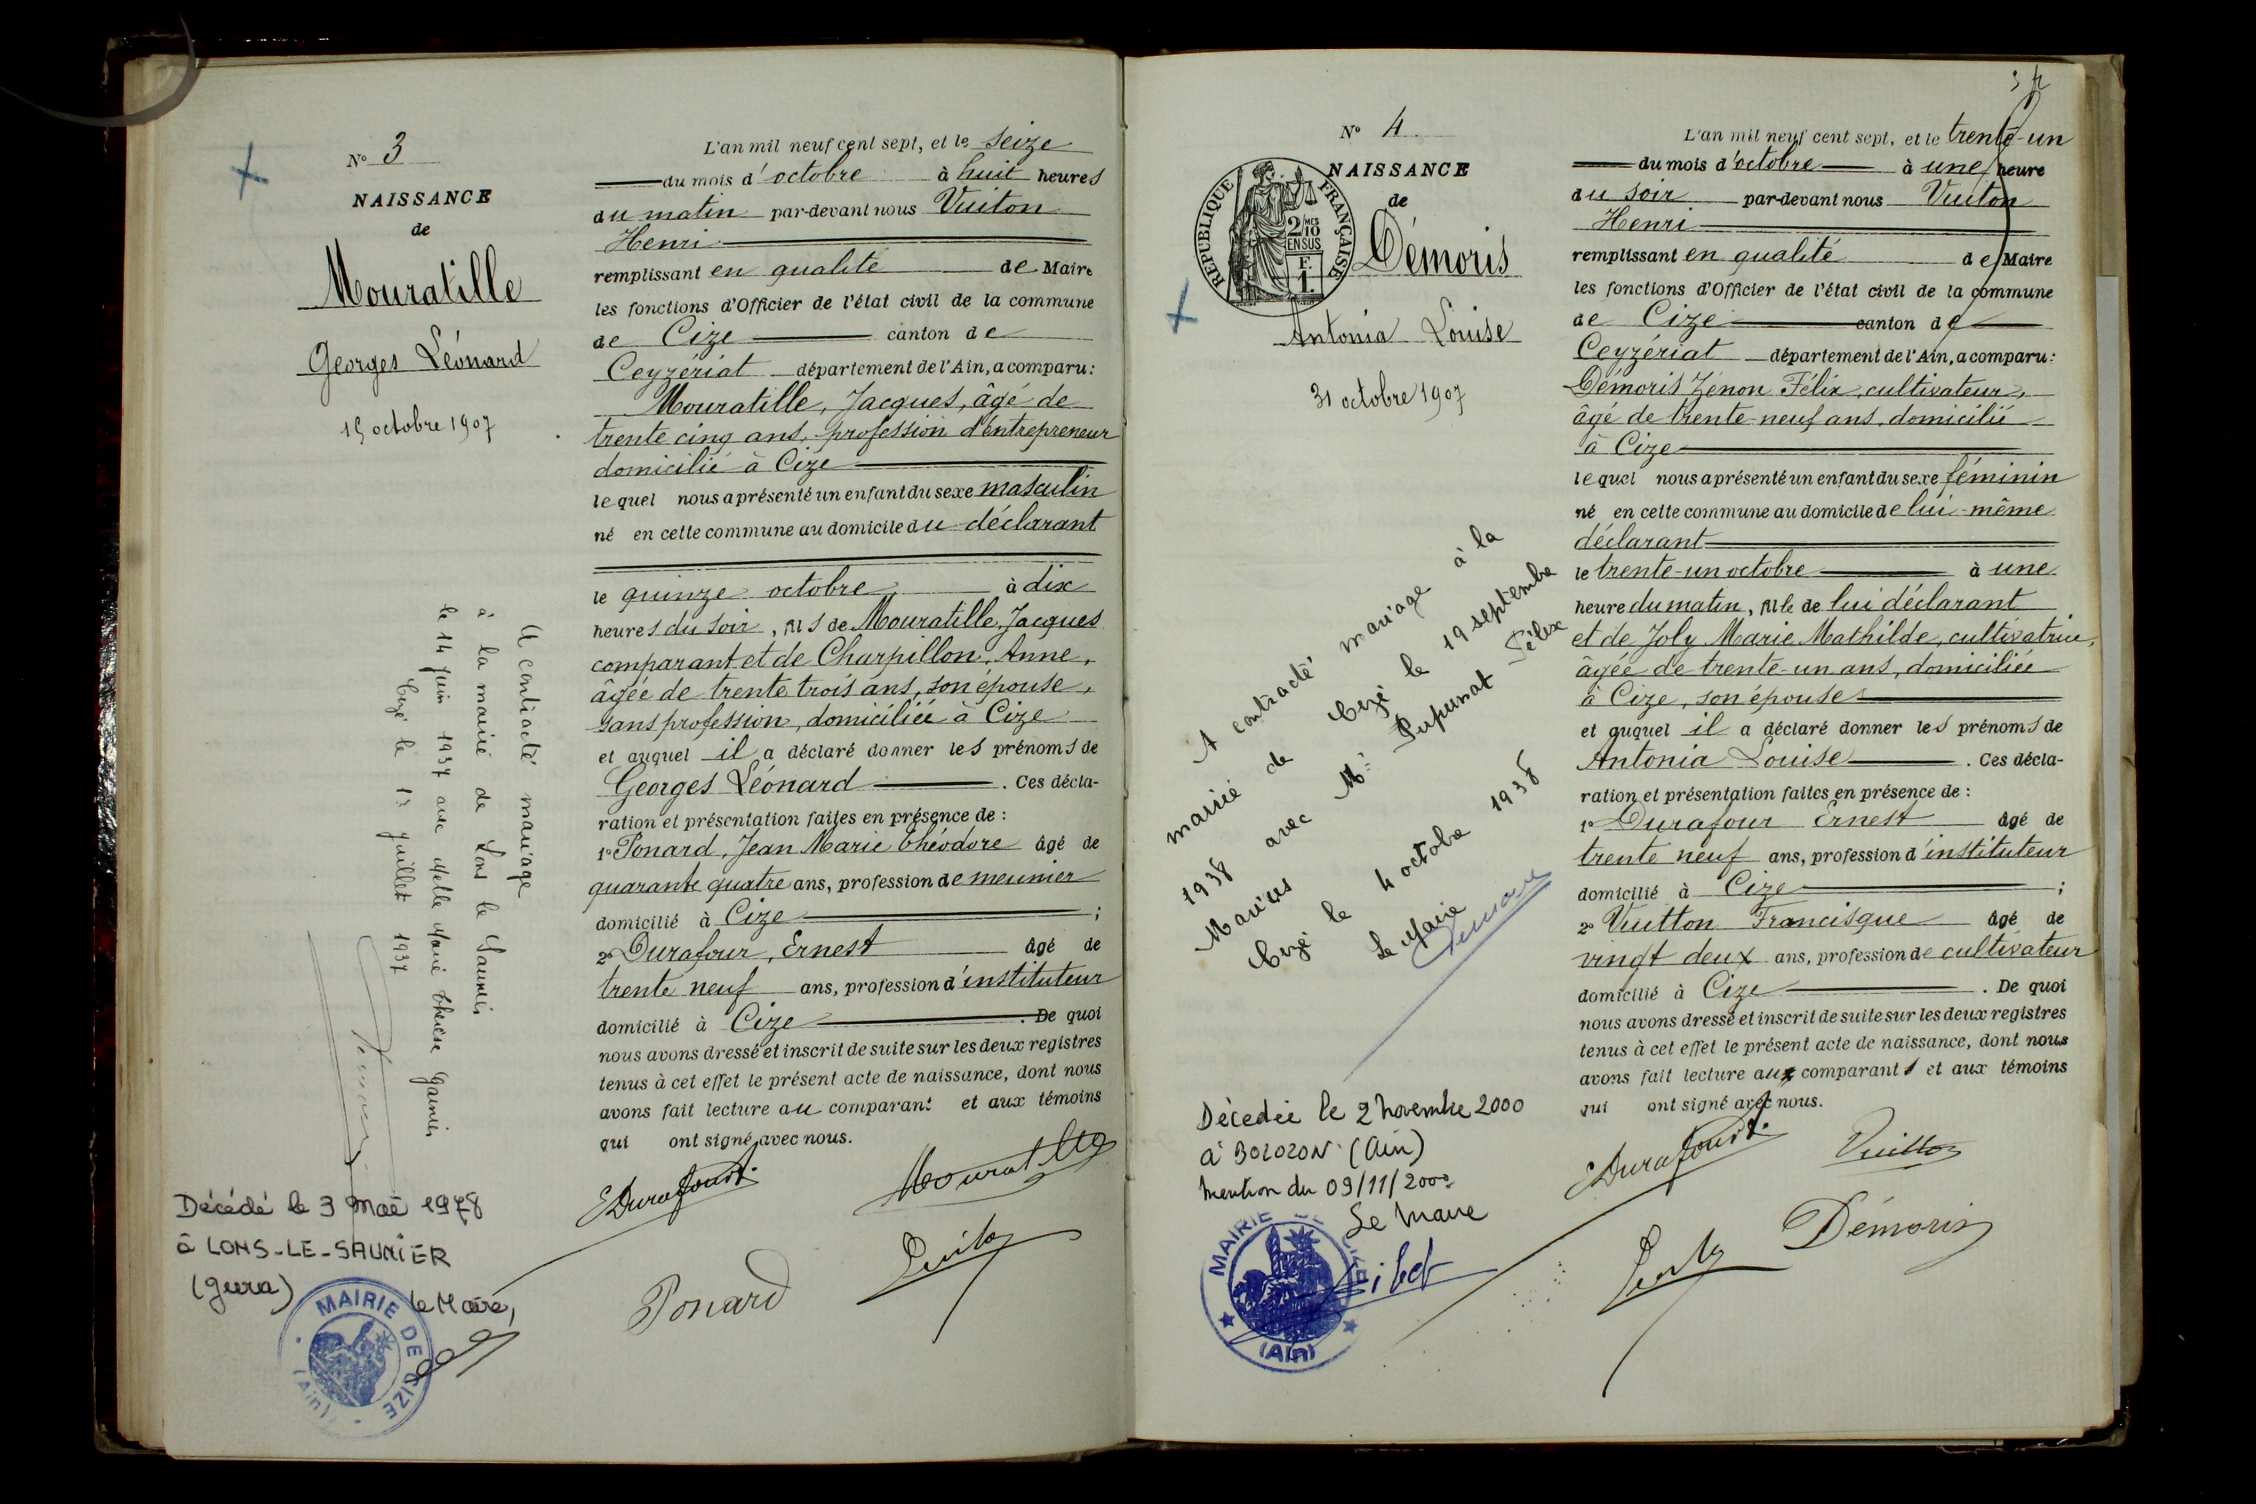 N° 3
NAISSANCE
de
Mouratille
Georges Léonard
15 octobre 1907
A contracté mariage
à la mairie de Lons le Saunier
le 14 juin 1937 avec Melle Marie Thérèse
Cize le 13 juillet 1937
Décédé le 3 Mai 1978
à LONS-LE-SAUNIER
(Jura)
le Maire,
MAIRIE DE CIZE
(Ain)
L'an mil neuf cent sept, et le seize
du mois d'octobre à huit heures
du matin par-devant nous Vuiton
Henri
remplissant en qualité de Maire
les fonctions d'Officier de l'état civil de la commune
de Cize canton de
Ceyzériat département de l'Ain, a comparu:
Mouratille, Jacques, âgé de
trente cinq ans, profession d'entrepreneur
domicilié à Cize
lequel nous a présenté un enfant du sexe masculin
né en cette commune au domicile du déclarant
le quinze octobre à dix
heures du soir, fils de Mouratille, Jacques
comparant et de Charpillon, Anne,
âgée de trente trois ans, son épouse,
sans profession, domiciliée à Cize
et auquel il a déclaré donner les prénoms de
Georges Léonard . Ces décla-
ration et présentation faites en présence de :
1° Ponard, Jean Marie Théodore âgé de
quarante quatre ans, profession de meunier
domicilié à Cize ;
2° Durafour, Ernest âgé de
trente neuf ans, profession d'instituteur
domicilié à Cize . De quoi
nous avons dressé et inscrit de suite sur les deux registres
tenus à cet effet le présent acte de naissance, dont nous
avons fait lecture au comparant et aux témoins
qui ont signé avec nous.
EDurafour
Mouratille
Ponard
N° 4
NAISSANCE
de
RÉPUBLIQUE FRANÇAISE
2/10
EN SUS
F.
1.
Démoris
Antonia Louise
31 octobre 1907
A contracté mariage à la
mairie de Cize le 19 septembre
1938 avec Mr Pupunat Félix
Marius
Cize le 4 octobre 1938
Le Maire
Décédée le 2 novembre 2000
à BOLOZON (Ain)
Mention du 09/11/2000
Le Maire
MAIRIE DE CIZE
(Ain)
L'an mil neuf cent sept, et le trente-un
du mois d'octobre à une heure
du soir par-devant nous Vuiton
Henri
remplissant en qualité de Maire
les fonctions d'Officier de l'état civil de la commune
de Cize canton de
Ceyzériat département de l'Ain, a comparu:
Démoris Zénon Félix, cultivateur,
âgé de trente-neuf ans, domicilié
à Cize
lequel nous a présenté un enfant du sexe féminin
né en cette commune au domicile de lui-même
déclarant
le trente-un octobre à une
heure du matin, fille de lui déclarant
et de Joly Marie Mathilde, cultivatrice,
âgée de trente-un ans, domiciliée
à Cize, son épouse
et auquel il a déclaré donner les prénoms de
Antonia Louise . Ces décla-
ration et présentation faites en présence de :
1° Durafour Ernest âgé de
trente neuf ans, profession d'instituteur
domicilié à Cize ;
2° Vuitton Francisque âgé de
vingt deux ans, profession de cultivateur
domicilié à Cize . De quoi
nous avons dressé et inscrit de suite sur les deux registres
tenus à cet effet le présent acte de naissance, dont nous
avons fait lecture au comparant et aux témoins
qui ont signé avec nous.
EDurafour
Vuitton
Démoris